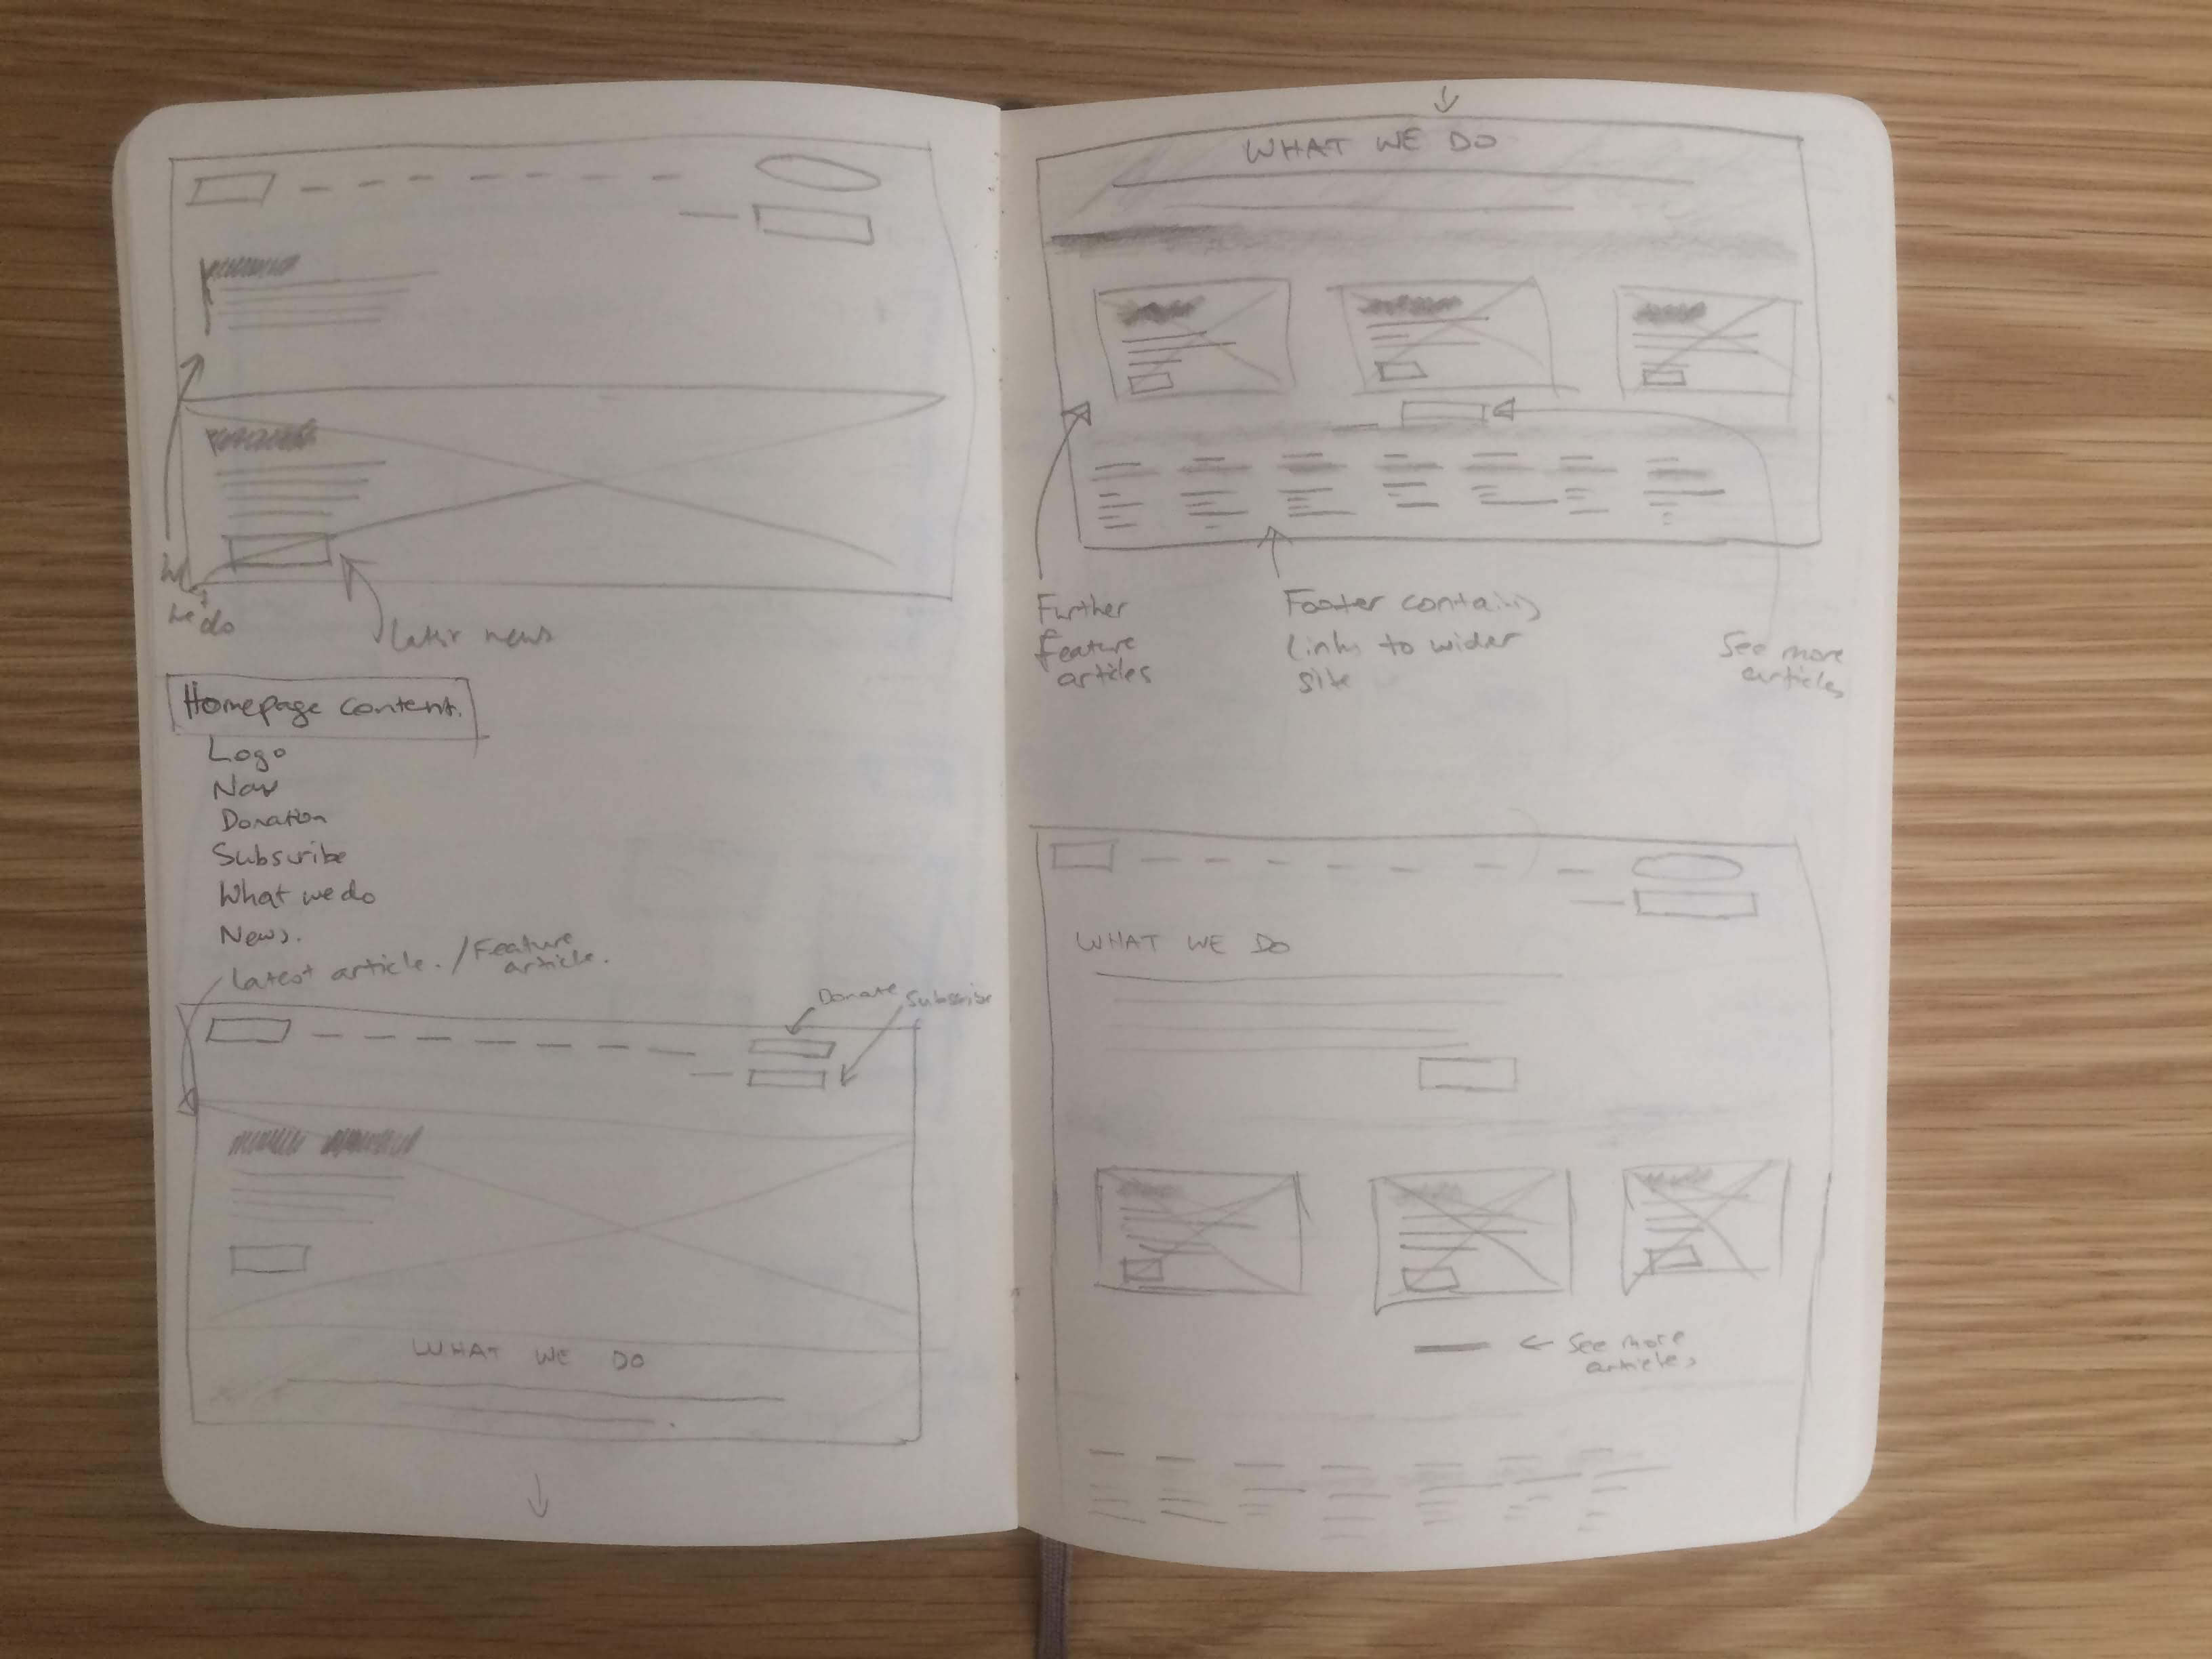 we do
latest news
Homepage content.
Logo
Nav
Donation
Subscribe
What we do
News.
Latest article. / Feature
article.
Donate Subscribe
WHAT WE DO
WHAT WE DO
Further
feature
articles
Footer containing
links to wider
site
See more
articles
WHAT WE DO
← See more
articles